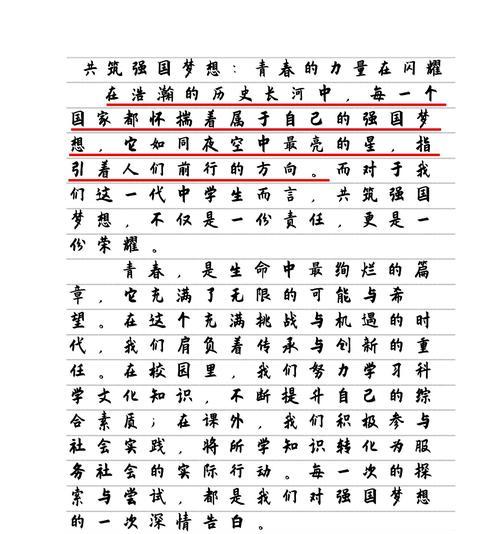 共筑强国梦想：青春的力量在闪耀
在浩瀚的历史长河中，每一个
国家都怀揣着属于自己的强国梦
想，它如同夜空中最亮的星，指
引着人们前行的方向。而对于我
们这一代中学生而言，共筑强国
梦想，不仅是一份责任，更是一
份荣耀。
青春，是生命中最绚烂的篇
章，它充满了无限的可能与希
望。在这个充满挑战与机遇的时
代，我们肩负着传承与创新的重
任。在校园里，我们努力学习科
学文化知识，不断提升自己的综
合素质；在课外，我们积极参与
社会实践，将所学知识转化为服
务社会的实际行动。每一次的探
索与尝试，都是我们对强国梦想
的一次深情告白。